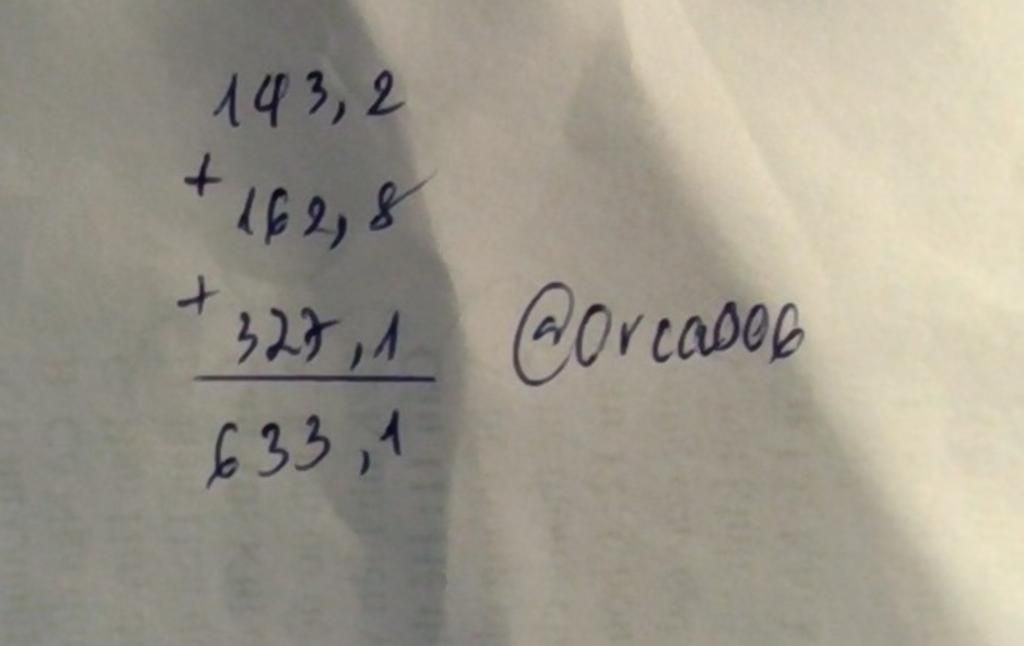 143,2
+
162,8
+
327,1
633,1
@Orca006